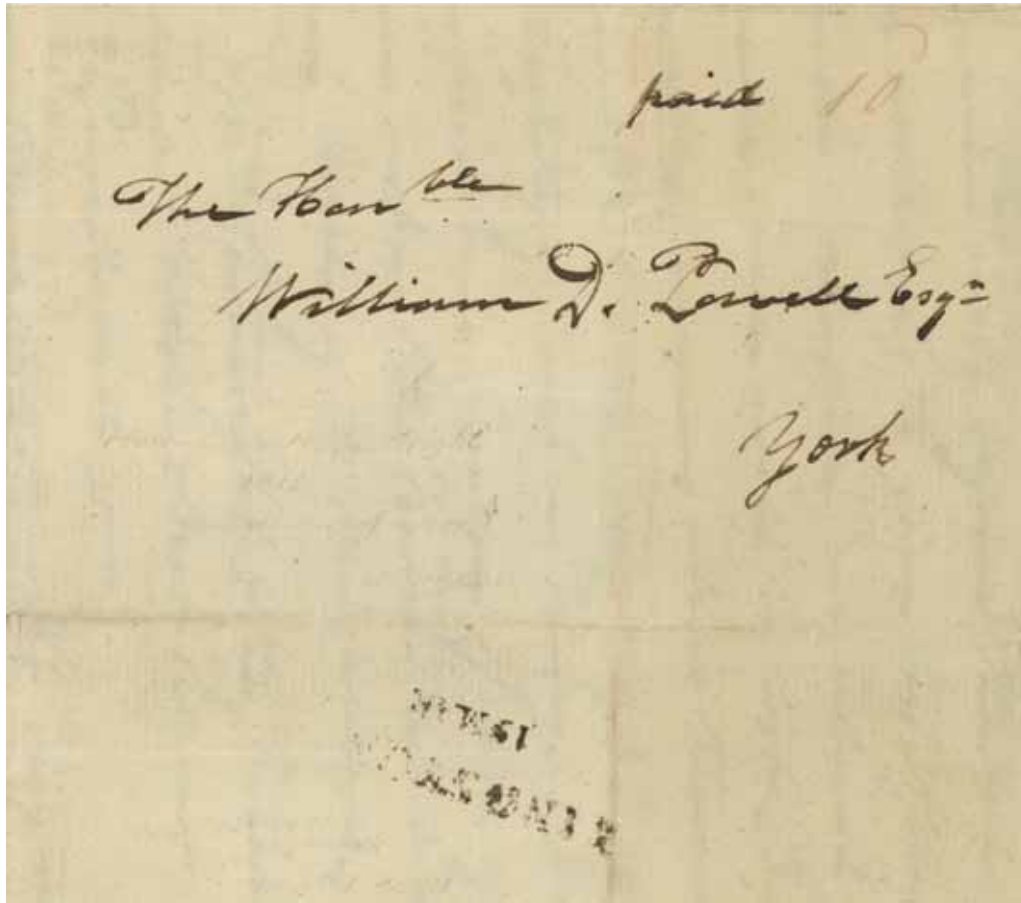 paid 10
The Hon ble
William D. Powell Esqr
York